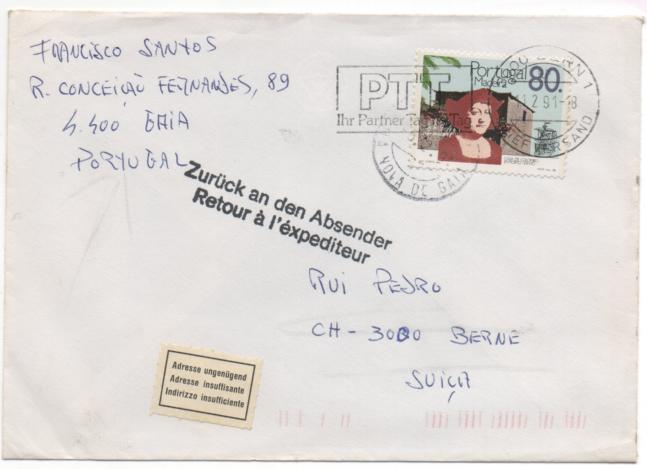 FRANCISCO SANTOS
R. CONCEIÇÃO FERNANDES, 89
4.400 GAIA
PORTUGAL
PTT
Ihr Partner Tag für Tag
BERN 1
11.2.91-18
BRIEFVERSAND
Portugal 80.
Madeira
DE GAIA
Zurück an den Absender
Retour à l'éxpediteur
RUI PEDRO
CH-3000 BERNE
SUIÇA
Adresse ungenügend
Adresse insuffisante
Indirizzo insufficiente